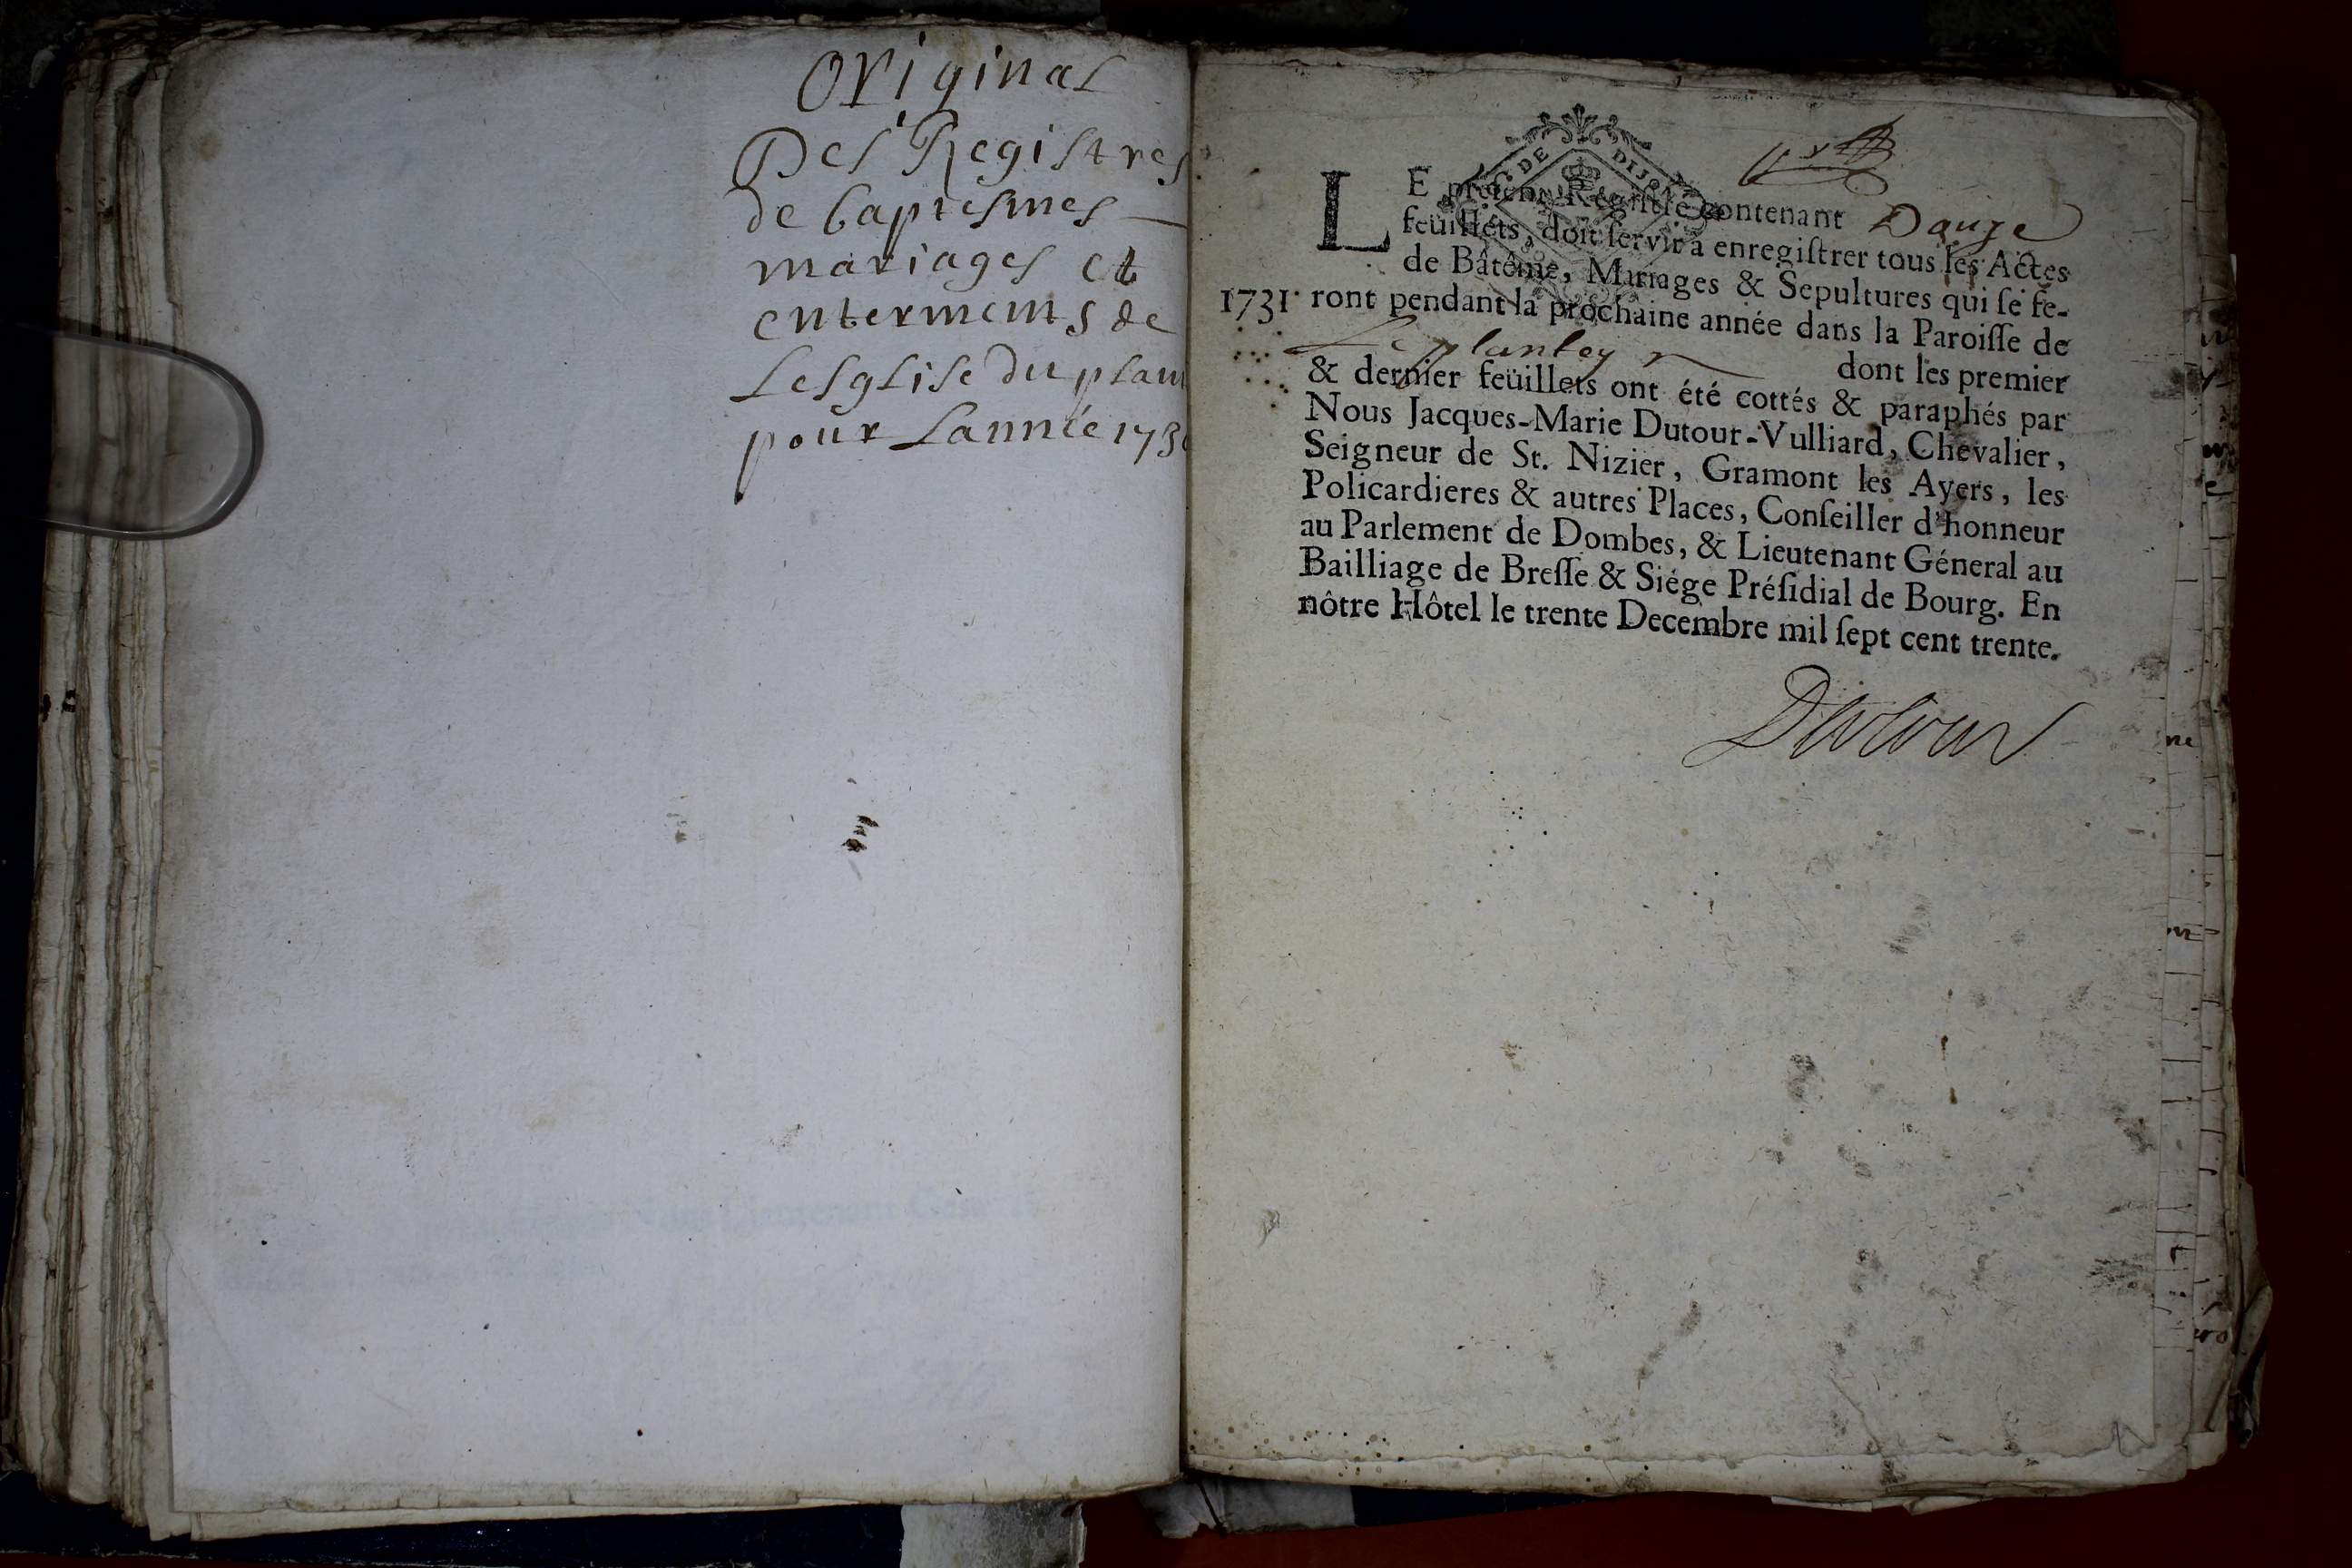 original
Des Registres
de baptesmes
mariages et
enterments de
Lesglise du plan
pour Lannée 173
GEN. DE DIJON
LE préſent Regiſtre contenant Douze
feüillets, doit ſervir à enregiſtrer tous les Actes
de Bâtême, Mariages & Sepultures qui ſe fe-
1731 ront pendant la prochaine année dans la Paroiſſe de
Le plantey dont les premier
& dernier feüillets ont été cottés & paraphés par
Nous Jacques-Marie Dutour-Vulliard, Chevalier,
Seigneur de St. Nizier, Gramont les Ayers, les
Policardieres & autres Places, Conſeiller d'honneur
au Parlement de Dombes, & Lieutenant Géneral au
Bailliage de Breſſe & Siége Préſidial de Bourg. En
nôtre Hôtel le trente Decembre mil ſept cent trente.
Dutour